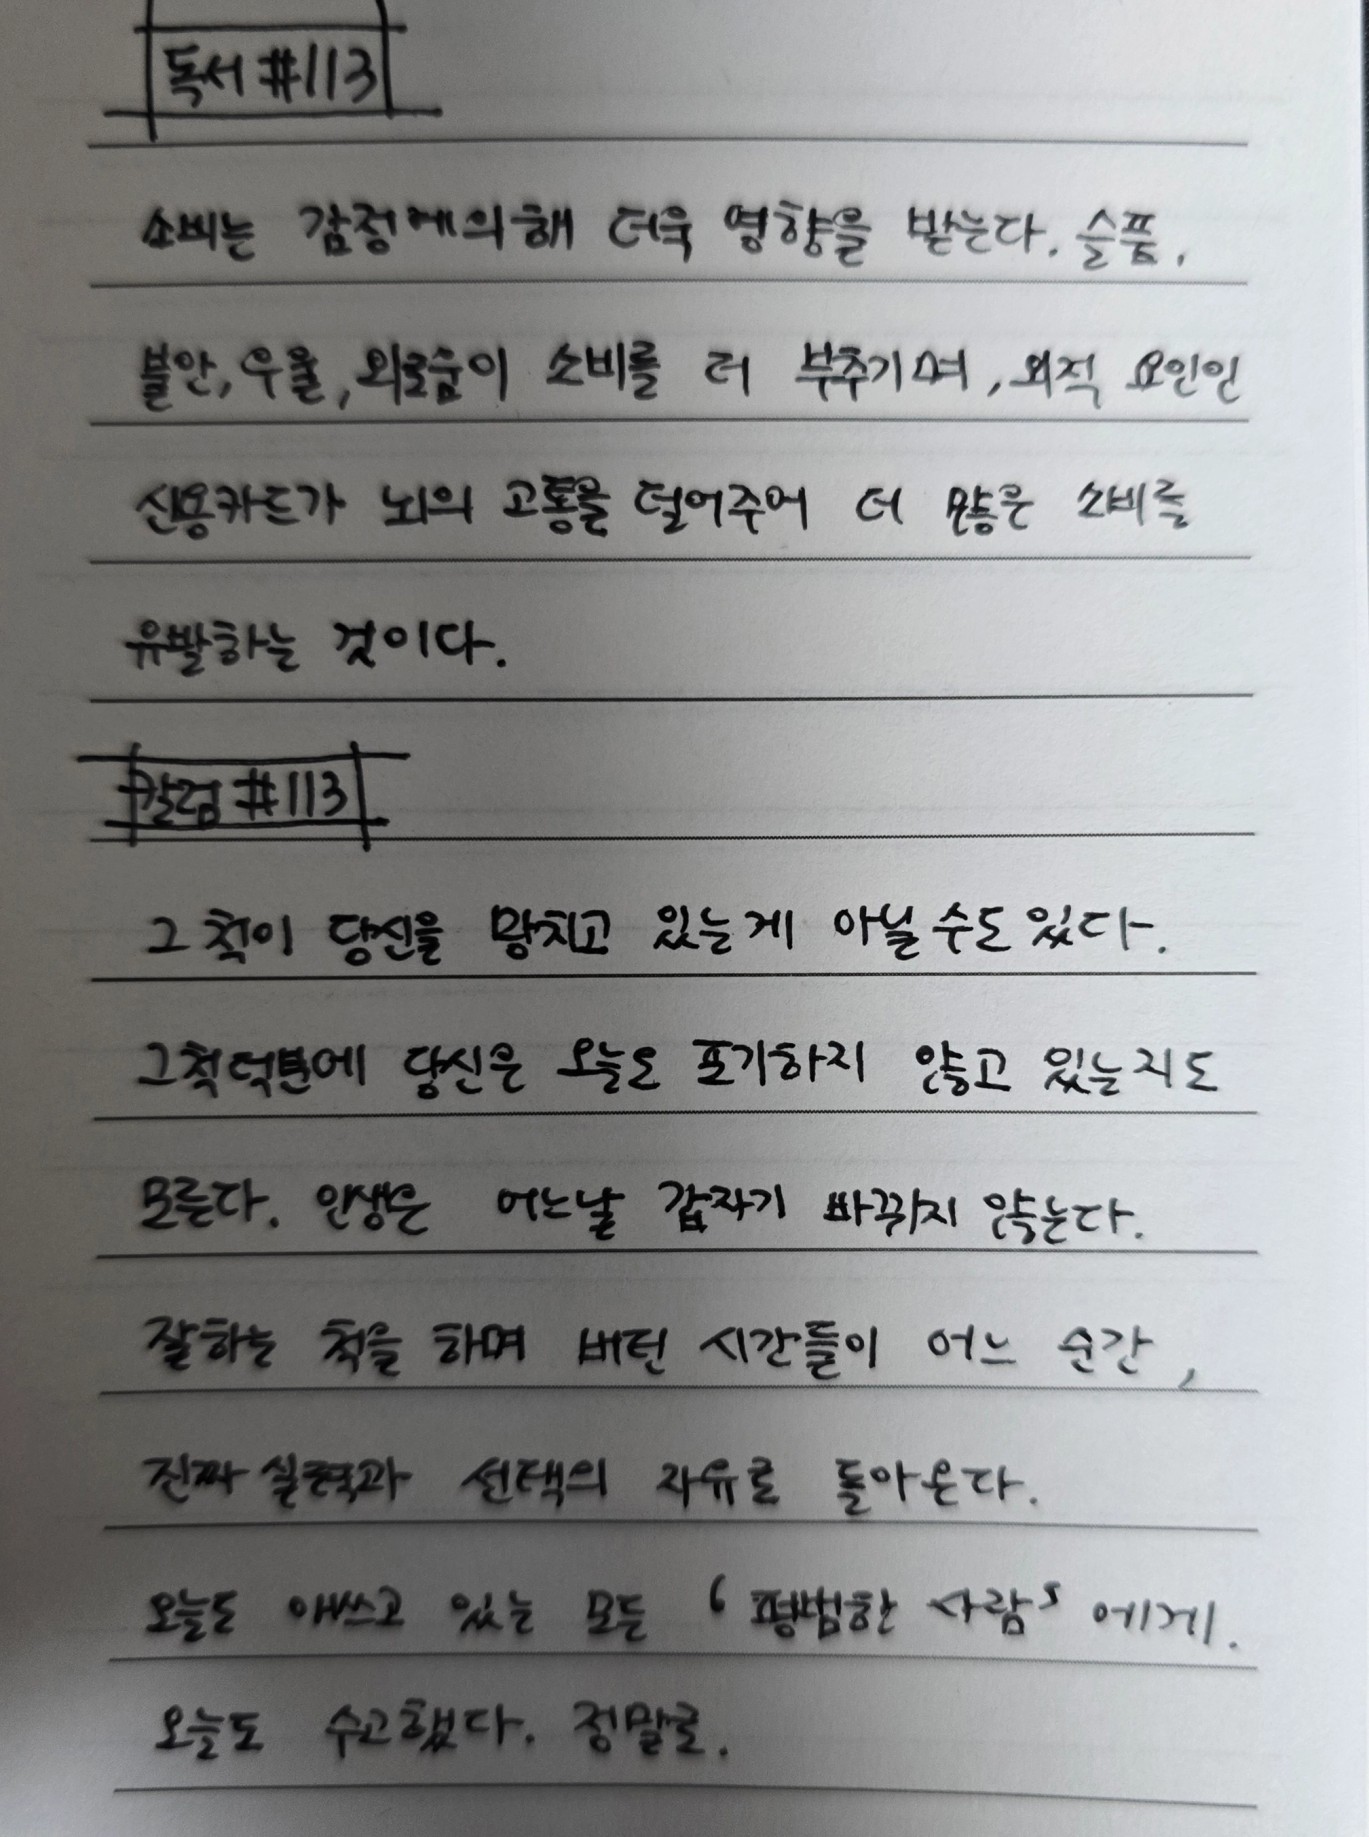 독서 #113
소비는 감정에의해 더욱 영향을 받는다. 슬픔,
불안, 우울, 외로움이 소비를 더 부추기며, 외적 요인인
신용카드가 뇌의 고통을 덜어주어 더 많은 소비를
유발하는 것이다.
칼럼 #113
그 척이 당신을 망치고 있는게 아닐 수도 있다.
그척 덕분에 당신은 오늘도 포기하지 않고 있는지도
모른다. 인생은 어느날 갑자기 바뀌지 않는다.
잘하는 척을 하며 버틴 시간들이 어느 순간,
진짜 실력과 선택의 자유로 돌아온다.
오늘도 애쓰고 있는 모든 '평범한 사람' 에게.
오늘도 수고했다. 정말로.